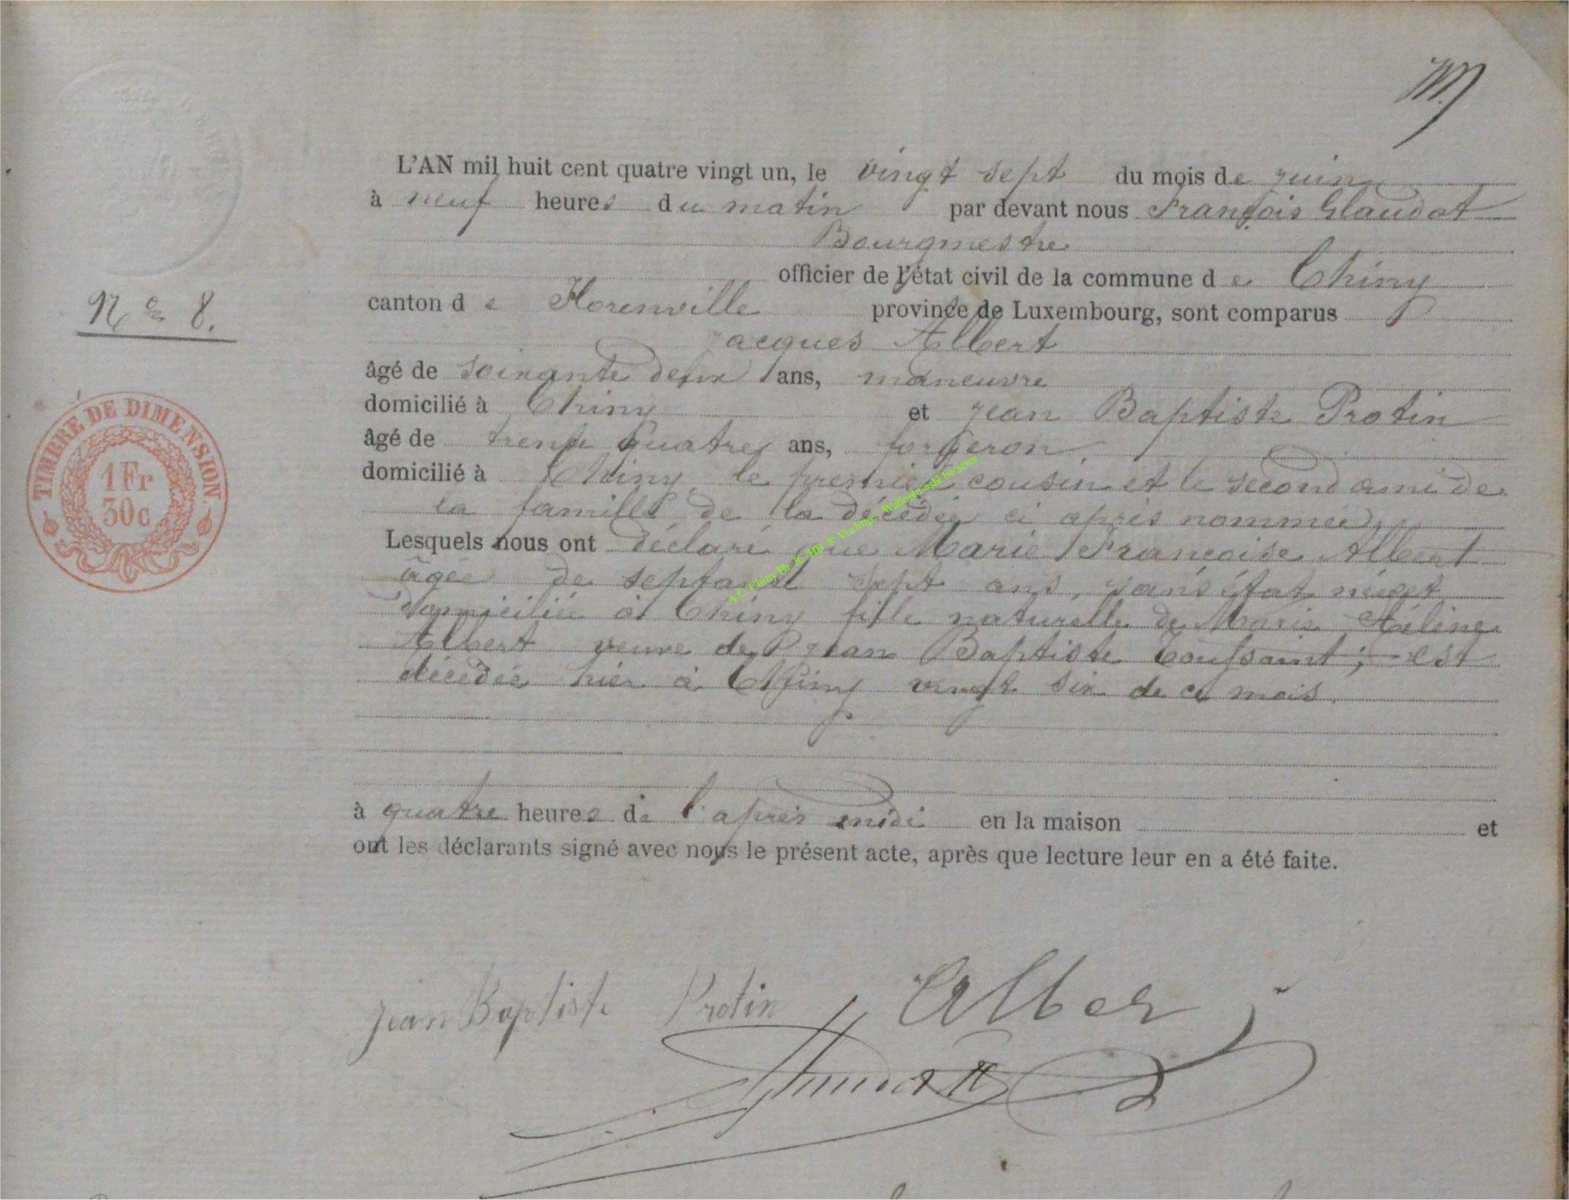 L'AN mil huit cent quatre vingt un, le vingt sept du mois de juin
à neuf heures du matin par devant nous François Glaudot
Bourgmestre
officier de l'état civil de la commune de Chiny
canton de Florenville province de Luxembourg, sont comparus
Jacques Albert
âgé de soixante deux ans, manœuvre
domicilié à Chiny et Jean Baptiste Protin
âgé de trente quatre ans, forgeron
domicilié à Chiny le premier cousin et le second ami de
la famille de la décédée ci après nommée
Lesquels nous ont déclaré que Marie Françoise Albert
âgée de septante sept ans, sans état née et
domiciliée à Chiny fille naturelle de Marie Hélène
Albert veuve de Jean Baptiste Toussaint; est
décédée hier à Chiny vingt six de ce mois.
à quatre heures de l'après midi en la maison et
ont les déclarants signé avec nous le présent acte, après que lecture leur en a été faite.
N° 8.
TIMBRE DE DIMENSION
1 Fr
30c
Jean Baptiste Protin Alber